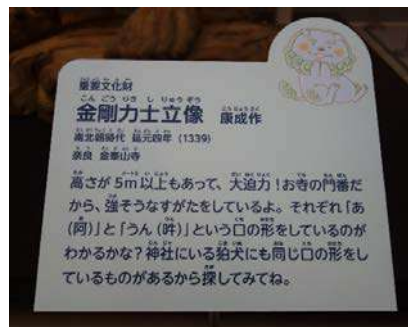 重要文化財
金剛力士立像 康成作
南北朝時代 延元四年 (1339)
奈良 金峯山寺
高さが5m以上もあって、大迫力!お寺の門番だ
から、強そうなすがたをしているよ。それぞれ「あ
(阿)」と「うん(吽)」という口の形をしているのが
わかるかな?神社にいる狛犬にも同じ口の形をし
ているものがあるから探してみてね。